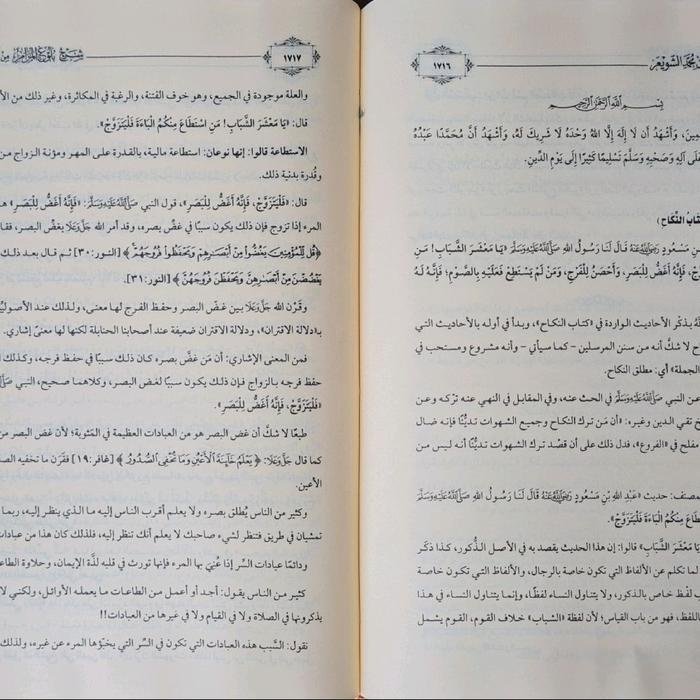 محمد الشويعر
١٧١٦
بسم الله الرحمن الرحيم
وَأَشْهَدُ أَن لَا إِلَهَ إِلَّا اللهُ وَحْدَهُ لَا شَرِيكَ لَهُ، وَأَشْهَدُ أَنَّ مُحَمَّدًا عَبْدُهُ
آلِهِ وَصَحْبِهِ وَسَلَّمَ تَسْلِيمًا كَثِيرًا إِلَى يَوْمِ الدِّينِ.
النِّكَاحِ)
مَسْعُودٍ رَضِيَ اللَّهُ عَنْهُ قَالَ لَنَا رَسُولُ اللهِ صَلَّى اللَّهُ عَلَيْهِ وَسَلَّمَ «يَا مَعْشَرَ الشَّبَابِ! مَنِ
فَإِنَّهُ أَغَضُّ لِلْبَصَرِ، وَأَحْصَنُ لِلْفَرْجِ، وَمَنْ لَمْ يَسْتَطِعْ فَعَلَيْهِ بِالصَّوْمِ؛ فَإِنَّهُ لَهُ
يذكر الأحاديث الواردة في «كتاب النكاح»، وبدأ في أوله بالأحاديث التي
لا شكَّ أنه من سنن المرسلين – كما سيأتي – وأنه مشروع ومستحب في
الجملة» أي: مطلق النكاح.
عن النبي صَلَّى اللَّهُ عَلَيْهِ وَسَلَّمَ في الحث عنه، وفي المقابل في النهي عنه تركه وعن
تقي الدين وغيره: «أن مَن ترك النكاح وجميع الشهوات تديُّنًا فإنه ضال
مفلح في «الفروع»، فدل ذلك على أن قصْد ترك الشهوات تديُّنًا أنه ليس من
المصنف: حديث «عَبْدِ اللهِ بْنِ مَسْعُودٍ رَضِيَ اللَّهُ عَنْهُ قَالَ لَنَا رَسُولُ اللهِ صَلَّى اللَّهُ عَلَيْهِ وَسَلَّمَ
مِنْكُمُ الْبَاءَةَ فَلْيَتَزَوَّجْ».
يَا مَعْشَرَ الشَّبَابِ» قالوا: إن هذا الحديث يقصد به في الأصل الذُّكور، كذا ذكَر
لما تكلم عن الألفاظ التي تكون خاصة بالرجال، والألفاظ التي تكون خاصة
لفْظ خاص بالذكور، ولا يتناول النساء لفظًا، وإنما يتناول النساء في هذا
باللفظ، فهو من باب القياس؛ لأن لفظة «الشباب» خلاف القوم، القوم يشمل
شرح بلوغ المرام من
١٧١٧
والعلة موجودة في الجميع، وهو خوف الفتنة، والرغبة في المكاثرة، وغير ذلك من
قال: «يَا مَعْشَرَ الشَّبَابِ! مَنِ اسْتَطَاعَ مِنْكُمُ الْبَاءَةَ فَلْيَتَزَوَّجْ».
الاستطاعة قالوا: إنها نوعان: استطاعة مالية، بالقدرة على المهر ومؤنة الزواج من
وقُدرة بدنية ذلك.
قال: «فَلْيَتَزَوَّجْ، فَإِنَّهُ أَغَضُّ لِلْبَصَرِ»، قول النبي صَلَّى اللَّهُ عَلَيْهِ وَسَلَّمَ: «فَإِنَّهُ أَغَضُّ لِلْبَصَرِ»
المرء إذا تزوج فإن ذلك يكون سببًا في غضِّ بصره، وقد أمر الله جَلَّ وَعَلَا بغضِّ البصر،
﴿قُل لِّلْمُؤْمِنِينَ يَغُضُّوا مِنْ أَبْصَارِهِمْ وَيَحْفَظُوا فُرُوجَهُمْ﴾ [النور: ٣٠] ثم قال بعد ذلك
يَغْضُضْنَ مِنْ أَبْصَارِهِنَّ وَيَحْفَظْنَ فُرُوجَهُنَّ﴾ [النور: ٣١].
وقَرْن الله جَلَّ وَعَلَا بين غض البصر وحفظ الفرج لها معنى، ولذلك عند
بـ«دلالة الاقتران»، ودلالة الاقتران ضعيفة عند أصحابنا الحنابلة لكنها لها معنىً إشاري.
فمن المعنى الإشاري: أن مَن غضَّ بصره كان ذلك سببًا في حفظ فرجه، وكذلك
حفظ فرجه بالزواج فإن ذلك يكون سببًا لغض البصر، وكلاهما صحيح، النبي
«فَلْيَتَزَوَّجْ، فَإِنَّهُ أَغَضُّ لِلْبَصَرِ».
طبعًا لا شكَّ أن غض البصر هو من العبادات العظيمة في المَثوبة؛ لأن غض البصر
كما قال جَلَّ وَعَلَا: ﴿يَعْلَمُ خَائِنَةَ الْأَعْيُنِ وَمَا تُخْفِي الصُّدُورُ﴾ [غافر: ١٩] فقرَن ما تخفيه
الأعين.
وكثير من الناس يُطلق بصره ولا يعلم أقرب الناس إليه ما الذي ينظر إليه، ربما
تمشيان في طريق فتنظر لشيء صاحبك لا يعلم أنك تنظر إليه، فلذلك كان هذا من
ودائمًا عبادات السرِّ إذا عُنِيَ بها المرء فإنها تورث في قلبه لذَّة الإيمان، وحلاوة
كثير من الناس يقول: أجد أو أعمل من الطاعات ما يعمله الأوائل، ولكني
يذكرونها في الصلاة ولا في القيام ولا في غيرها من العبادات!!
نقول: السَّبب هذه العبادات التي تكون في السِّر التي يخبؤها المرء عن غيره، ولذلك